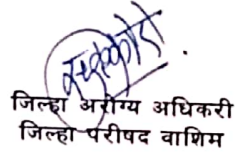 जिल्हा आरोग्य अधिकरी
जिल्हा परीषद वाशिम